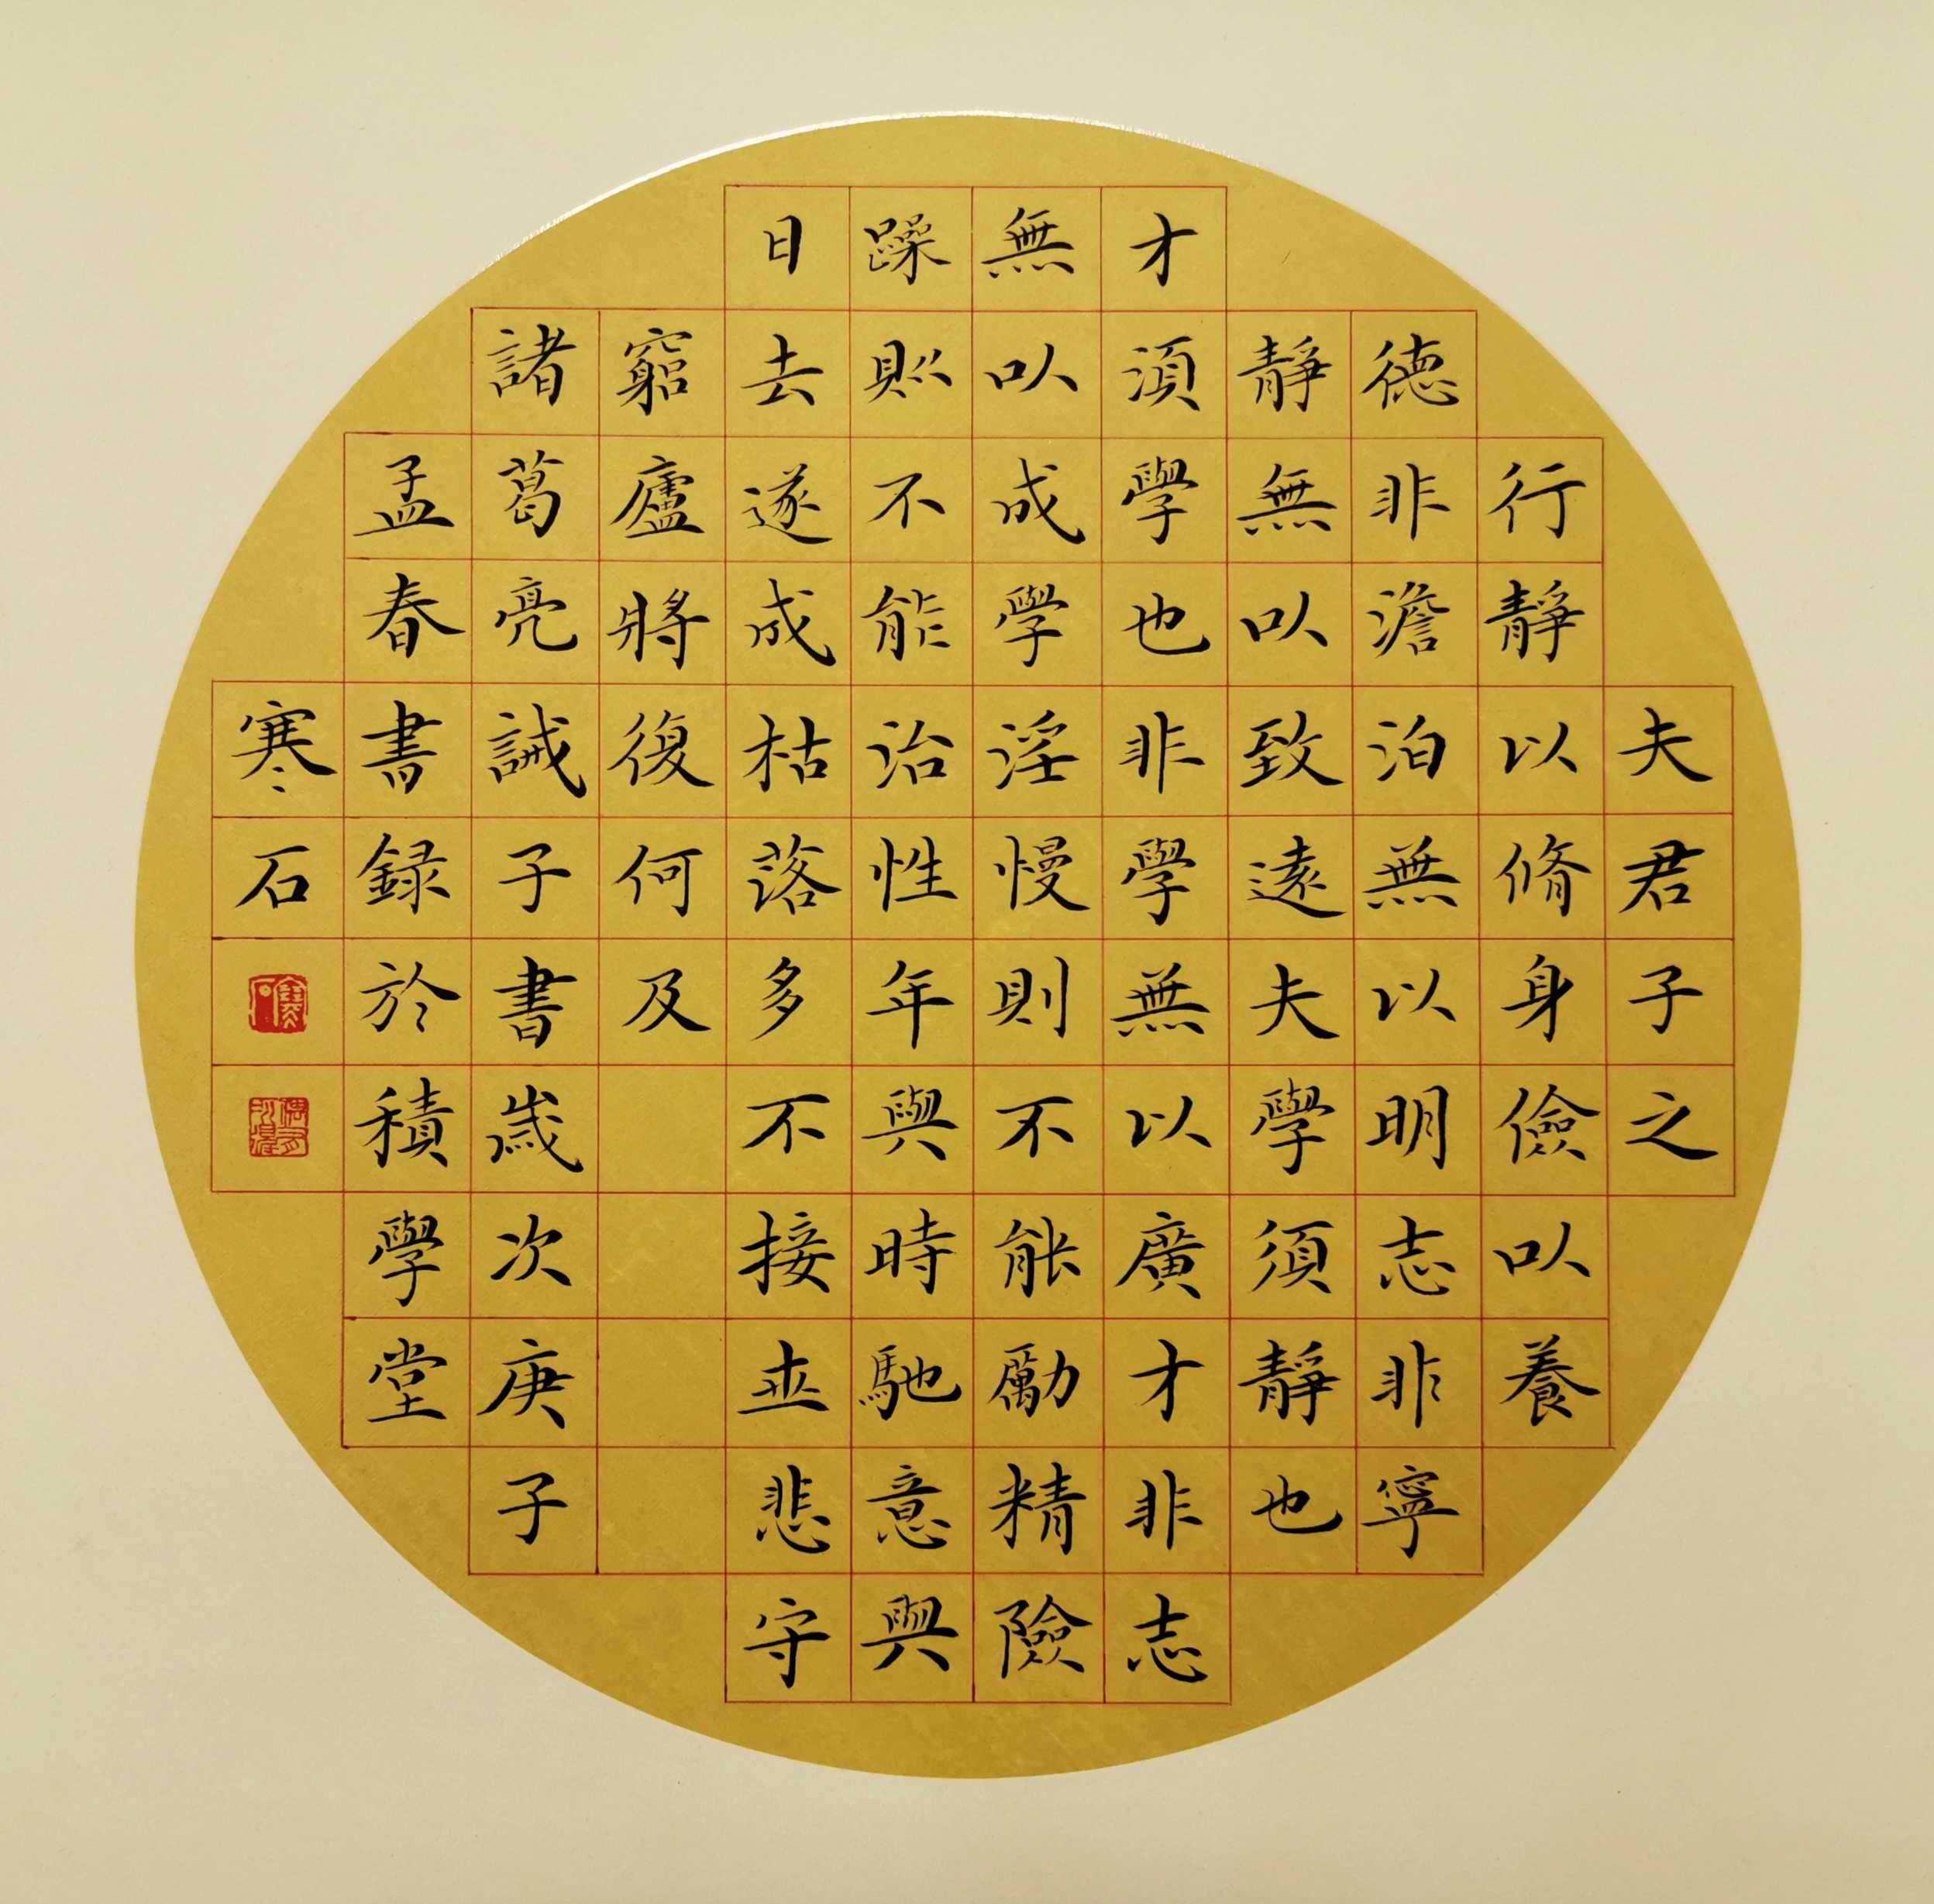 夫君子之
行靜以脩身儉以養
德非澹泊無以明志非寧
靜無以致遠夫學須靜也
才須學也非學無以廣才非志
無以成學淫慢則不能勵精險
躁則不能治性年與時馳意與
日去遂成枯落多不接並悲守
窮廬將復何及
諸葛亮誡子書歲次庚子
孟春書録於積學堂
寒石